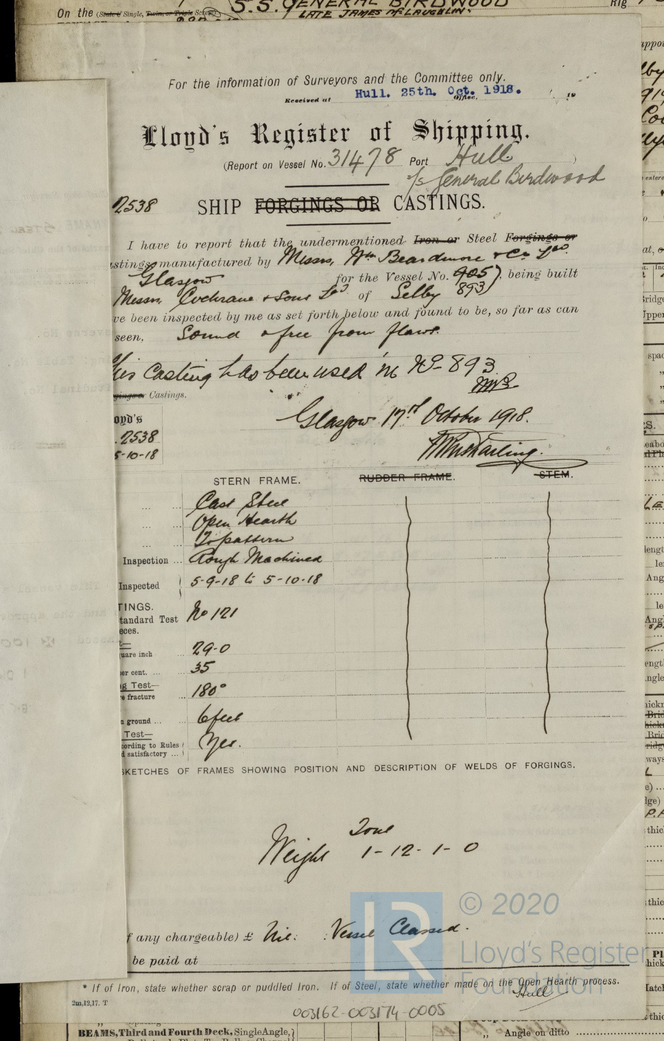 On the (State if Single, Twin, or Triple Screw)
S.S. GENERAL BIRDWOOD
LATE JAMES McLAUGHLIN.
Rig
For the information of Surveyors and the Committee only.
Received at Office, 19
Hull. 25th. Oct. 1918.
Lloyd's Register of Shipping.
(Report on Vessel No. 31478 Port Hull
s/s General Birdwood
2538 SHIP FORGINGS OR CASTINGS.
I have to report that the undermentioned Iron or Steel Forgings or
stings, manufactured by Messrs, Wm Beardmore & Co Ltd
Glasgow for the Vessel No. 905), being built
Messrs, Cochrane & Sons Ltd of Selby 893)
ve been inspected by me as set forth below and found to be, so far as can
seen, Sound & free from flaws.
his Casting has been used in No 893
Castings.
oyd's
2538
5-10-18
Glasgow 17th October 1918.
STERN FRAME. RUDDER FRAME. STEM.
Cast Steel
Open Hearth
To pattern
Inspection Rough Machined
Inspected 5-9-18 to 5-10-18
TINGS.
tandard Test No 121
eces.
uare inch 29.0
er cent. 35
g Test—
e fracture 180°
n ground ... 6 feet
Test—
cording to Rules
d satisfactory ... Yes.
SKETCHES OF FRAMES SHOWING POSITION AND DESCRIPTION OF WELDS OF FORGINGS.
Tons
Weight 1-12-1-0
f any chargeable) £ Nil: Vessel Classed.
be paid at
LR © 2020
Lloyd's Register
Foundation
* If of Iron, state whether scrap or puddled Iron. If of Steel, state whether made on the Open Hearth process.
2m,12,17. T
Hull
003162-003174-0005
BEAMS, Third and Fourth Deck, Single Angle,
„ Angle on ditto